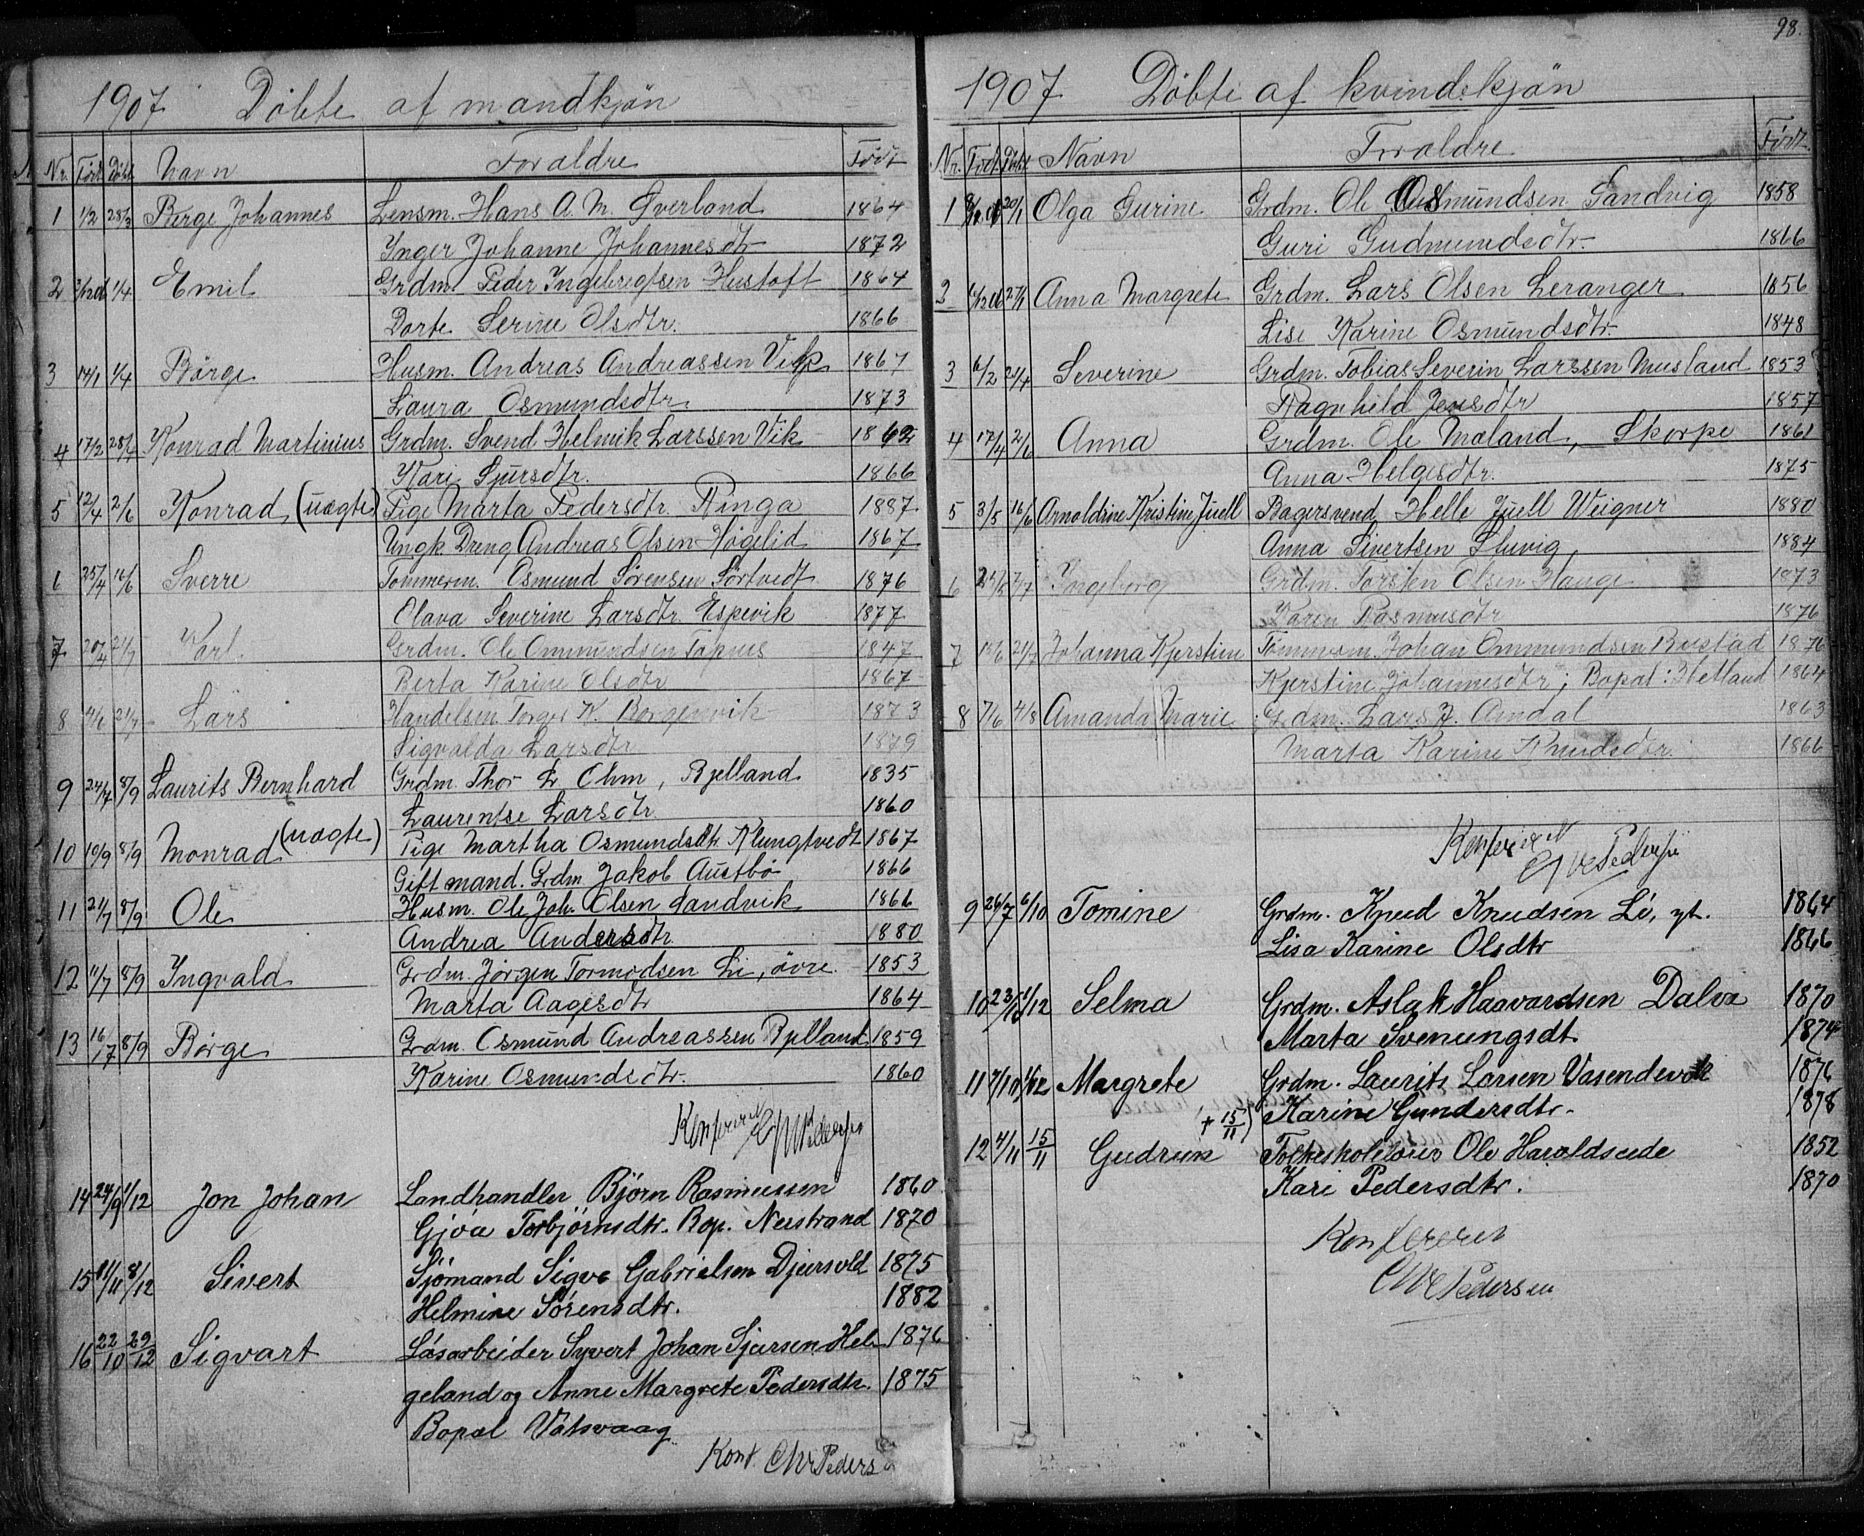 98.
1907 Döbte af mandkjön
Nr. Född Döbt Navn Foraldre Född
1 1/2 28/3 Børge Johannes Lensm. Hans A. M. Øverland 1864
Inger Johanne Johannesdtr 1872
2 1/4 Emil Grdm. Peder Ingebregtsen Hustoft 1864
Dorte Serine Olsdtr. 1866
3 14/1 1/4 Børge Husm. Andreas Andreassen Vik 1867
Laura Osmundsdtr. 1873
4 17/2 28/4 Konrad Martinius Grdm. Svend Helmik Larssen Vik 1862
Kari Sjursdtr. 1866
5 12/4 2/6 Konrad, (uægte) Pige Marta Pedersdtr. Ringa 1887
Ungk. Dreng Andreas Olsen Høgelid 1867
6 25/4 16/6 Sverre Tømmerm. Osmund Sørensen Sørtvedt 1876
Olava Severine Larsdtr Espevik 1877
7 20/4 21/7 Karl Grdm. Ole Ommundsen 1847
Berta Karine Olsdtr 1867
8 4/6 21/7 Lars Handelsm. Torger K. Borgenvik 1873
Sigvalda Larsdtr 1879
9 24/7 8/9 Laurits Bernhard Grdm. Thor L Ohm, Bjelland 1835
Laurentse Larsdtr 1860
10 10/9 8/9 Monrad (uægte) Pige Martha Osmundsdtr Klungtvedt 1867
Gift mand. Grdm Jakob Austbö 1866
11 21/7 8/9 Ole Husm. Ole Joh. Olsen Sandvik 1866
Andrea Andersdtr 1880
12 11/7 8/9 Ingvald Grdm. Jörgen Tormodsen Li, övre. 1853
Marta Aagesdtr 1864
13 16/7 8/9 Børge Grdm. Osmund Andreassen Bjelland 1859
Karine Osmundsdtr. 1860
Konfereret Chr Pedersen
14 24/9 1/12 Jon Johan Landhandler Björn Rasmussen 1860
Gjöa Torbjörnsdtr. Bop. Nerstrand 1870
15 8/12 Sivert Sjömand Sigve Gabrielsen Djursvold 1875
Helmine Sörensdtr. 1882
16 22/10 22/12 Sigvart Lösarbeider Syvert Johan Sjursen Hel- 1876
geland og Anne Margrete Pedersdtr. 1875
Bopæl Vatsvaag
Konf. Chr Peders
1907 Döbte af kvindekjön
Nr. Född Döbt Navn Foraldre Född
1 20/1 Olga Gurine Grdm. Ole Osmundsen Sandvig 1858
Guri Gudmundsdtr. 1866
2 27/1 Anna Margrete Grdm. Lars Olsen Leranger 1856
Lise Karine Osmundsdtr 1848
3 6/2 21/4 Severine Grdm. Tobias Severin Larssen Musland 1853
Ragnhild Jensdtr 1857
4 17/4 2/6 Anna Grdm. Ole Mæland, Skorpe 1861
Anna Helgesdtr. 1875
5 3/5 16/6 Arnoldine Kristine Juell Bagersvend Helle Juell Weigner 1880
Anna Sivertsen Sluvig, 1884
6 7/7 Ingeborg Grdm. Torsten Olsen Hauge 1873
Karen Rasmusdtr 1876
7 21/7 Johanna Kjerstine Tømmerm. Johan Ommundsen Buestad 1876
Kjerstine Johannesdtr; Bopæl: Hetland 1864
8 7/6 4/8 Amanda Marie Grdm. Lars J. Amdal 1863
Marta Karine Knudsdtr. 1866
Konfereret
Chr Pedersen
9 26/7 6/10 Tomine Grdm. Knud Knudsen Li, yt. 1864
Lisa Karine Olsdtr 1866
10 23/10 1/12 Selma Grdm. Aslak Haavardsen Dalva 1870
Marta Svenungsdt. 1874
11 7/10 1/12 Margrete Grdm. Laurits Larsen Vasendevik 1876
Karine Gundersdtr. 1878
12 4/11 15/11 Gudrun († 15/11) Folkeskolelærer Ole Haraldseide 1852
Kari Pedersdtr. 1870
Konfereret
Chr Pedersen